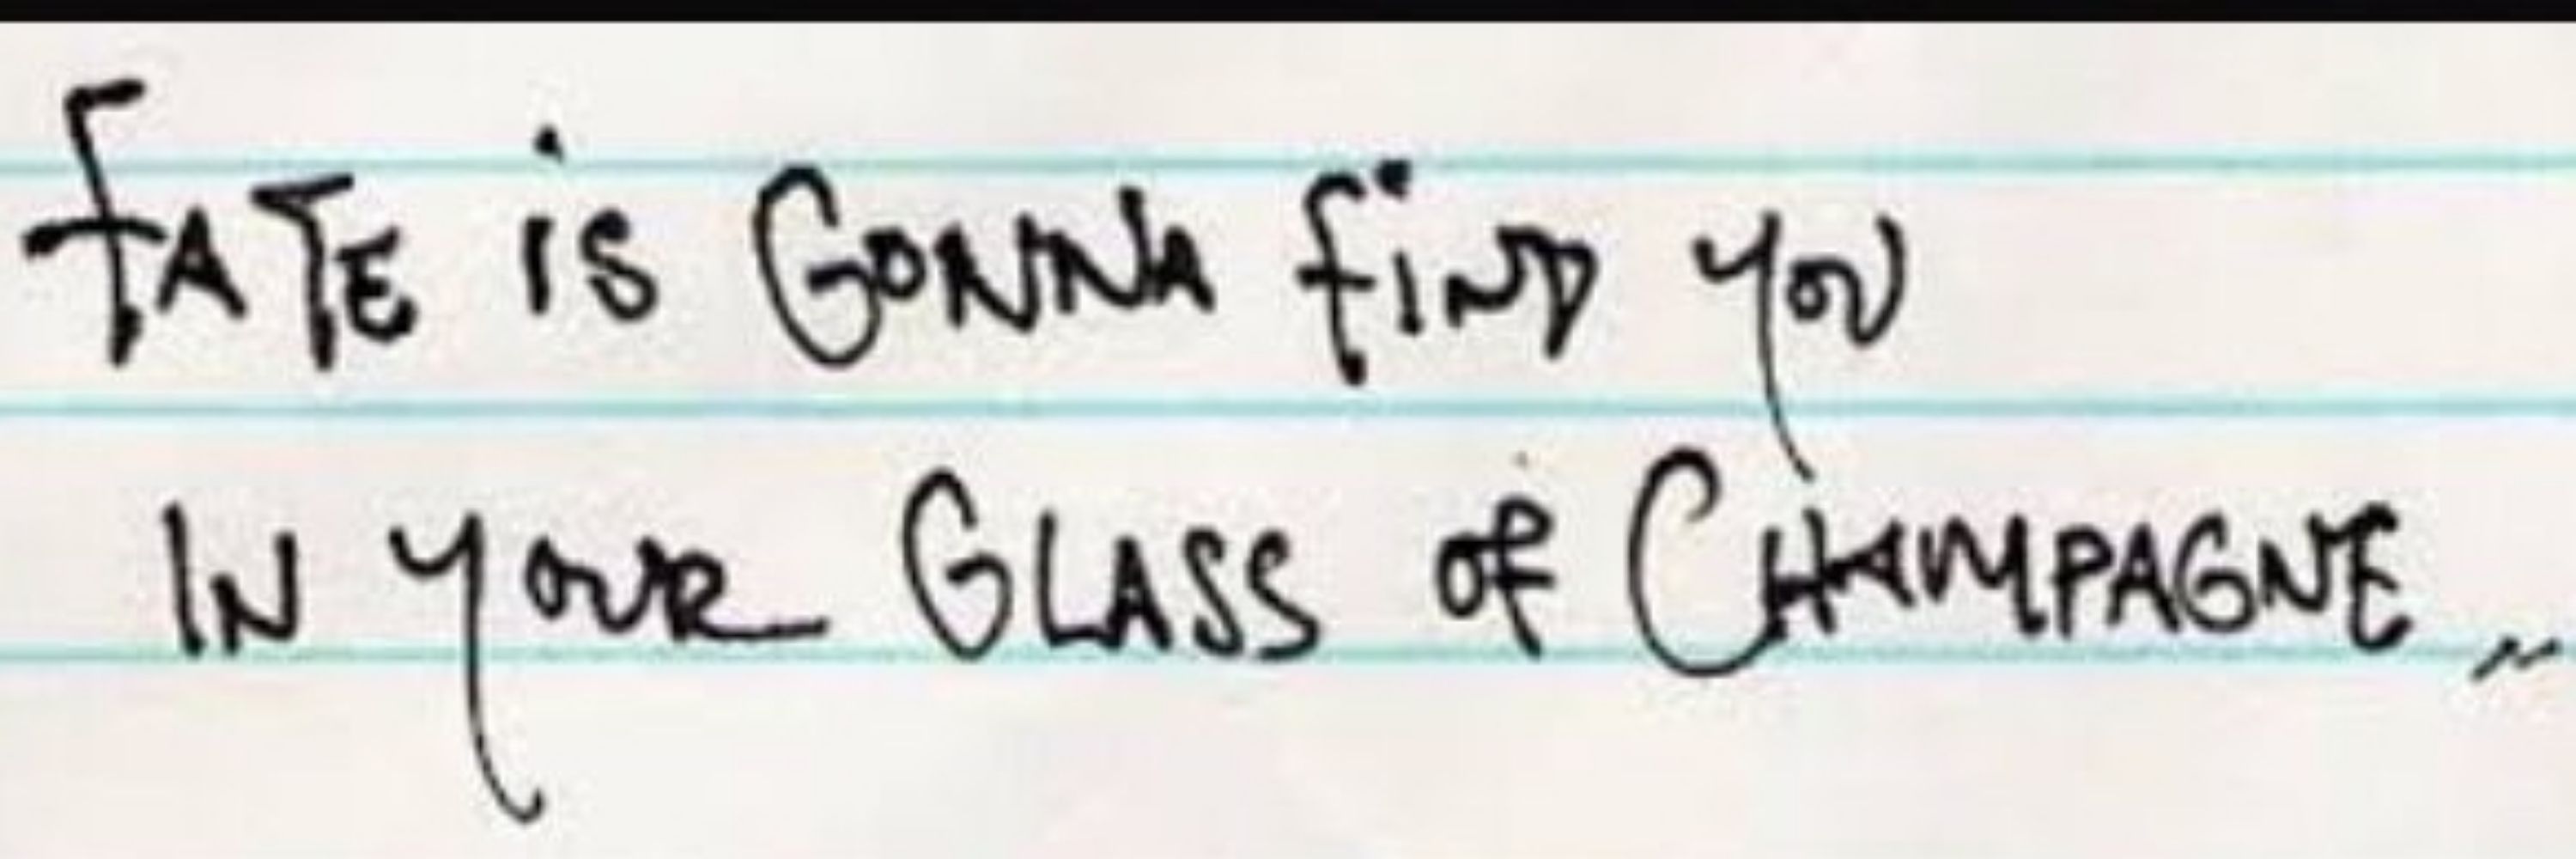 FATE is GONNA fiND you
IN youR GLASS of CHAMPAGNE